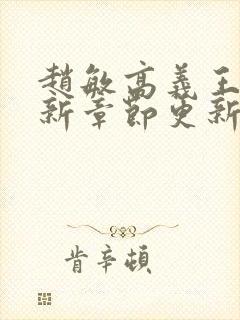 趙敏高義王
新章節更新
肯辛頓